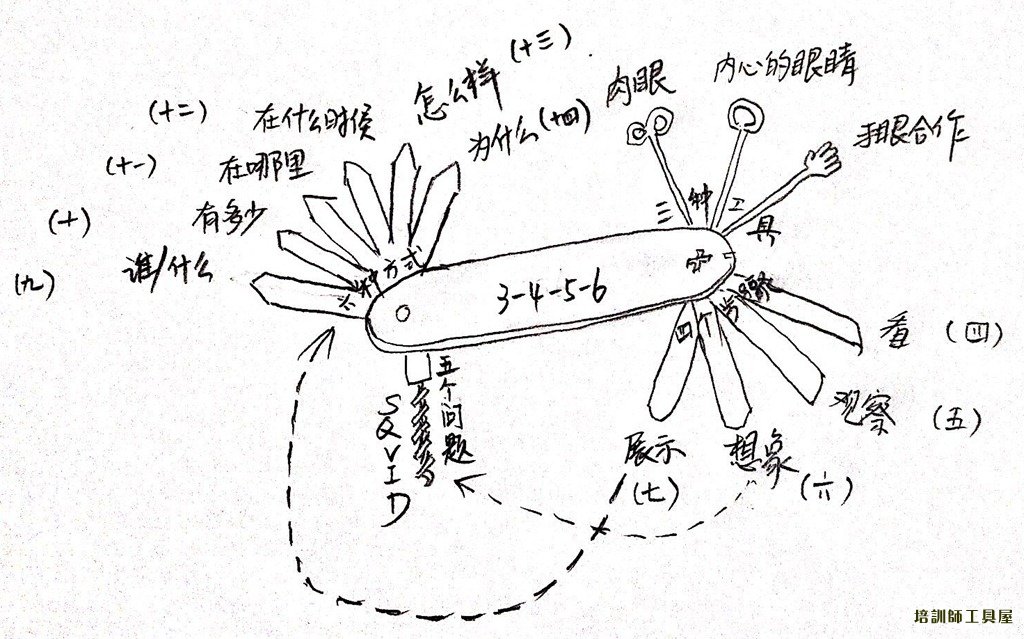 怎么样 (十三)
肉眼
内心的眼睛
(十二) 在什么时候
为什么 (十四)
手眼合作
(十一) 在哪里
(十) 有多少
(九) 谁/什么
六种方式
三种工具
3-4-5-6
四个步骤
看 (四)
观察 (五)
想象 (六)
展示 (七)
五个问题
SQVID
培訓師工具屋